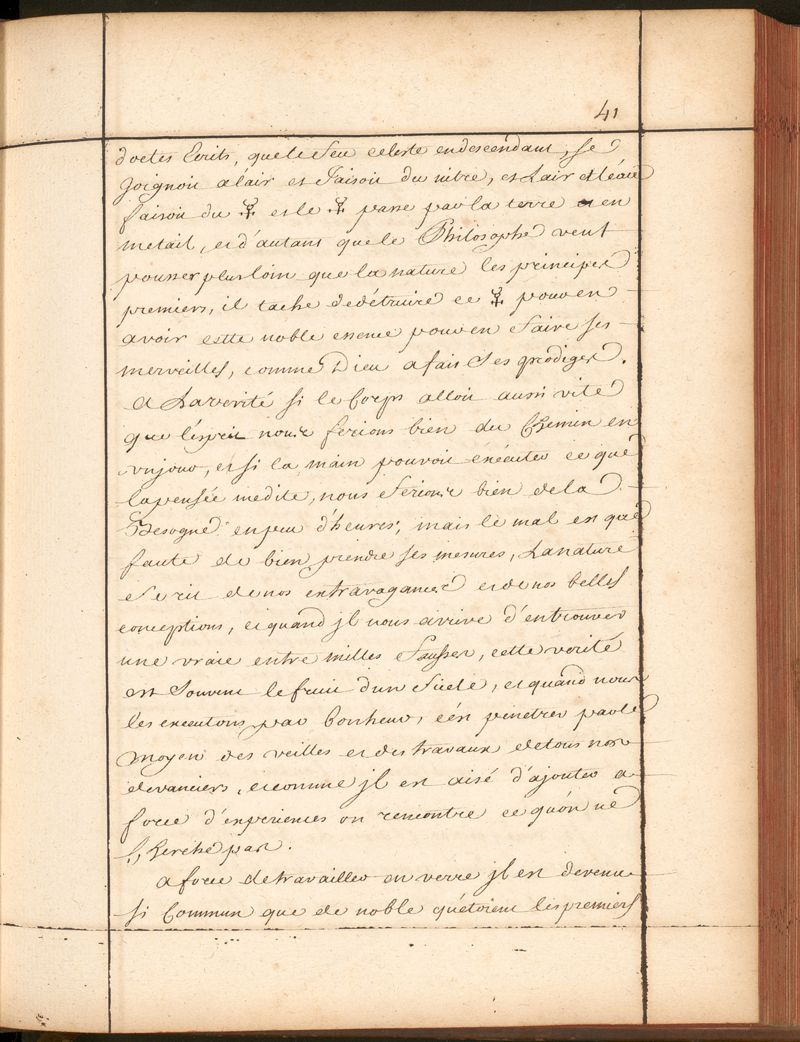 41
doctes Ecrits, que le feu celeste en descendant, se
Joignoit a l'air et faisoit du nitre, et L'air et l'eau
faisoit du 🜐 et le 🜐 passe par la terre et en
metail, et d'autant que le Philosophe veut
pousser plus loin que la nature les principes
premiers, il tache de détruire ce 🜐 pour en
avoir cette noble essence pour en faire ses
merveilles, comme Dieu a fait ses prodiges.
A La verité si le Corps alloit aussi vite
que l'esprit nous ferions bien du Chemin en
un jour, et si la main pouvoit executer ce que
la pensée medite, nous ferions bien de la
Besogne en peu d'heures, mais le mal est que
faute de bien prendre ses mesures, La nature
se rit de nos extravagances et de nos belles
conceptions, et quand jl nous arrive d'en trouver
une vraie entre milles fausses, cette verité
est souvent le fruit d'un siecle, et quand nous
les executons par bonheur, c'est penetrer par le
moyen des veilles et des travaux de tous nos
devanciers, et comme jl est aisé d'ajouter a
force d'experiences on rencontre ce qu'on ne
Cherche pas.
a force de travailler en verre jl est devenu
si Commun que de noble qu'étoient les premiers